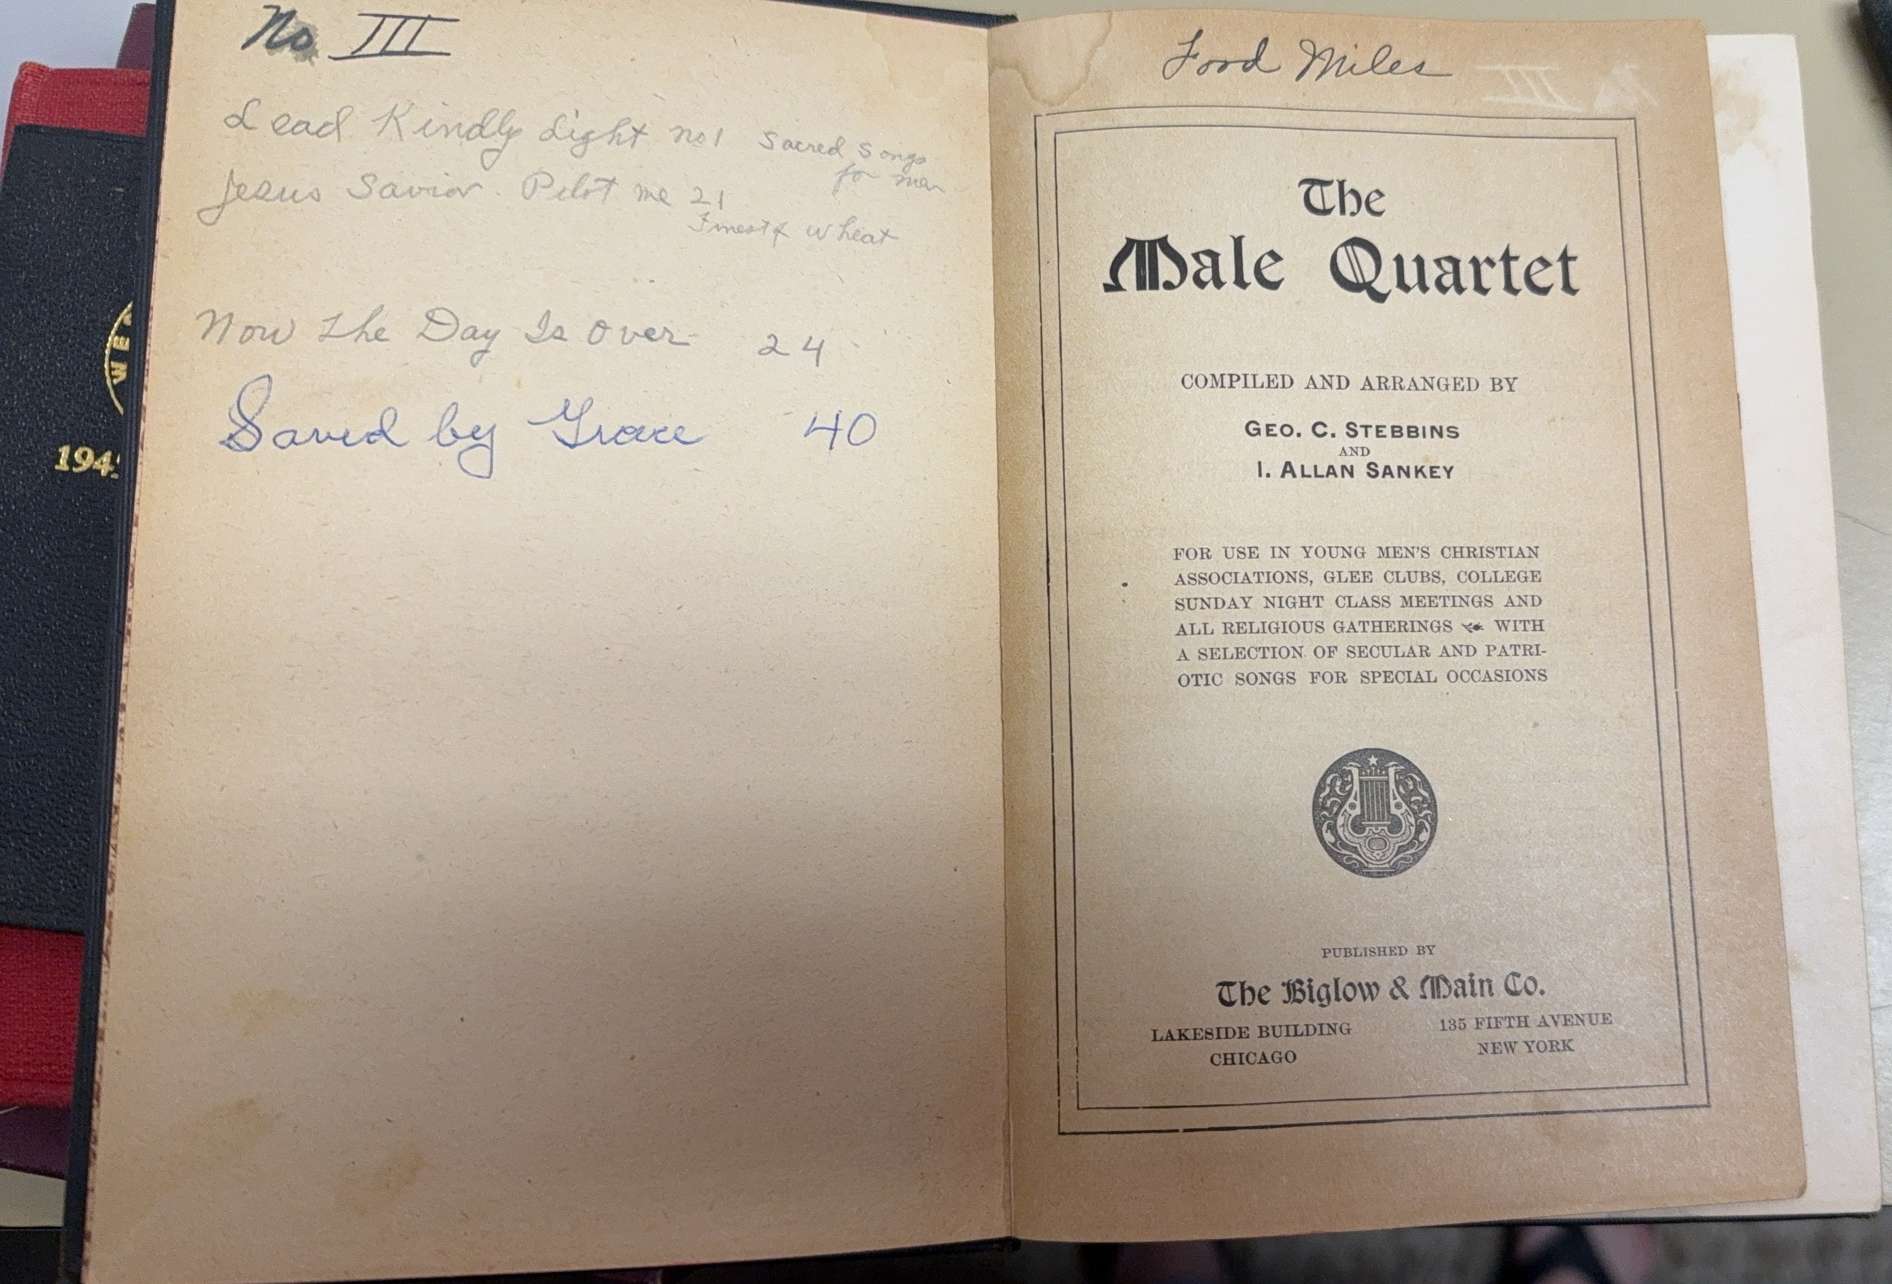 No III
Lead Kindly Light no 1 Sacred Songs
for men
Jesus Savior Pilot me 21
Finest of Wheat
Now the Day Is Over 24
Saved by Grace 40
WE
194
Ford Miles
The
Male Quartet
COMPILED AND ARRANGED BY
GEO. C. STEBBINS
AND
I. ALLAN SANKEY
FOR USE IN YOUNG MEN'S CHRISTIAN
ASSOCIATIONS, GLEE CLUBS, COLLEGE
SUNDAY NIGHT CLASS MEETINGS AND
ALL RELIGIOUS GATHERINGS WITH
A SELECTION OF SECULAR AND PATRI-
OTIC SONGS FOR SPECIAL OCCASIONS
PUBLISHED BY
The Biglow & Main Co.
LAKESIDE BUILDING
CHICAGO
135 FIFTH AVENUE
NEW YORK